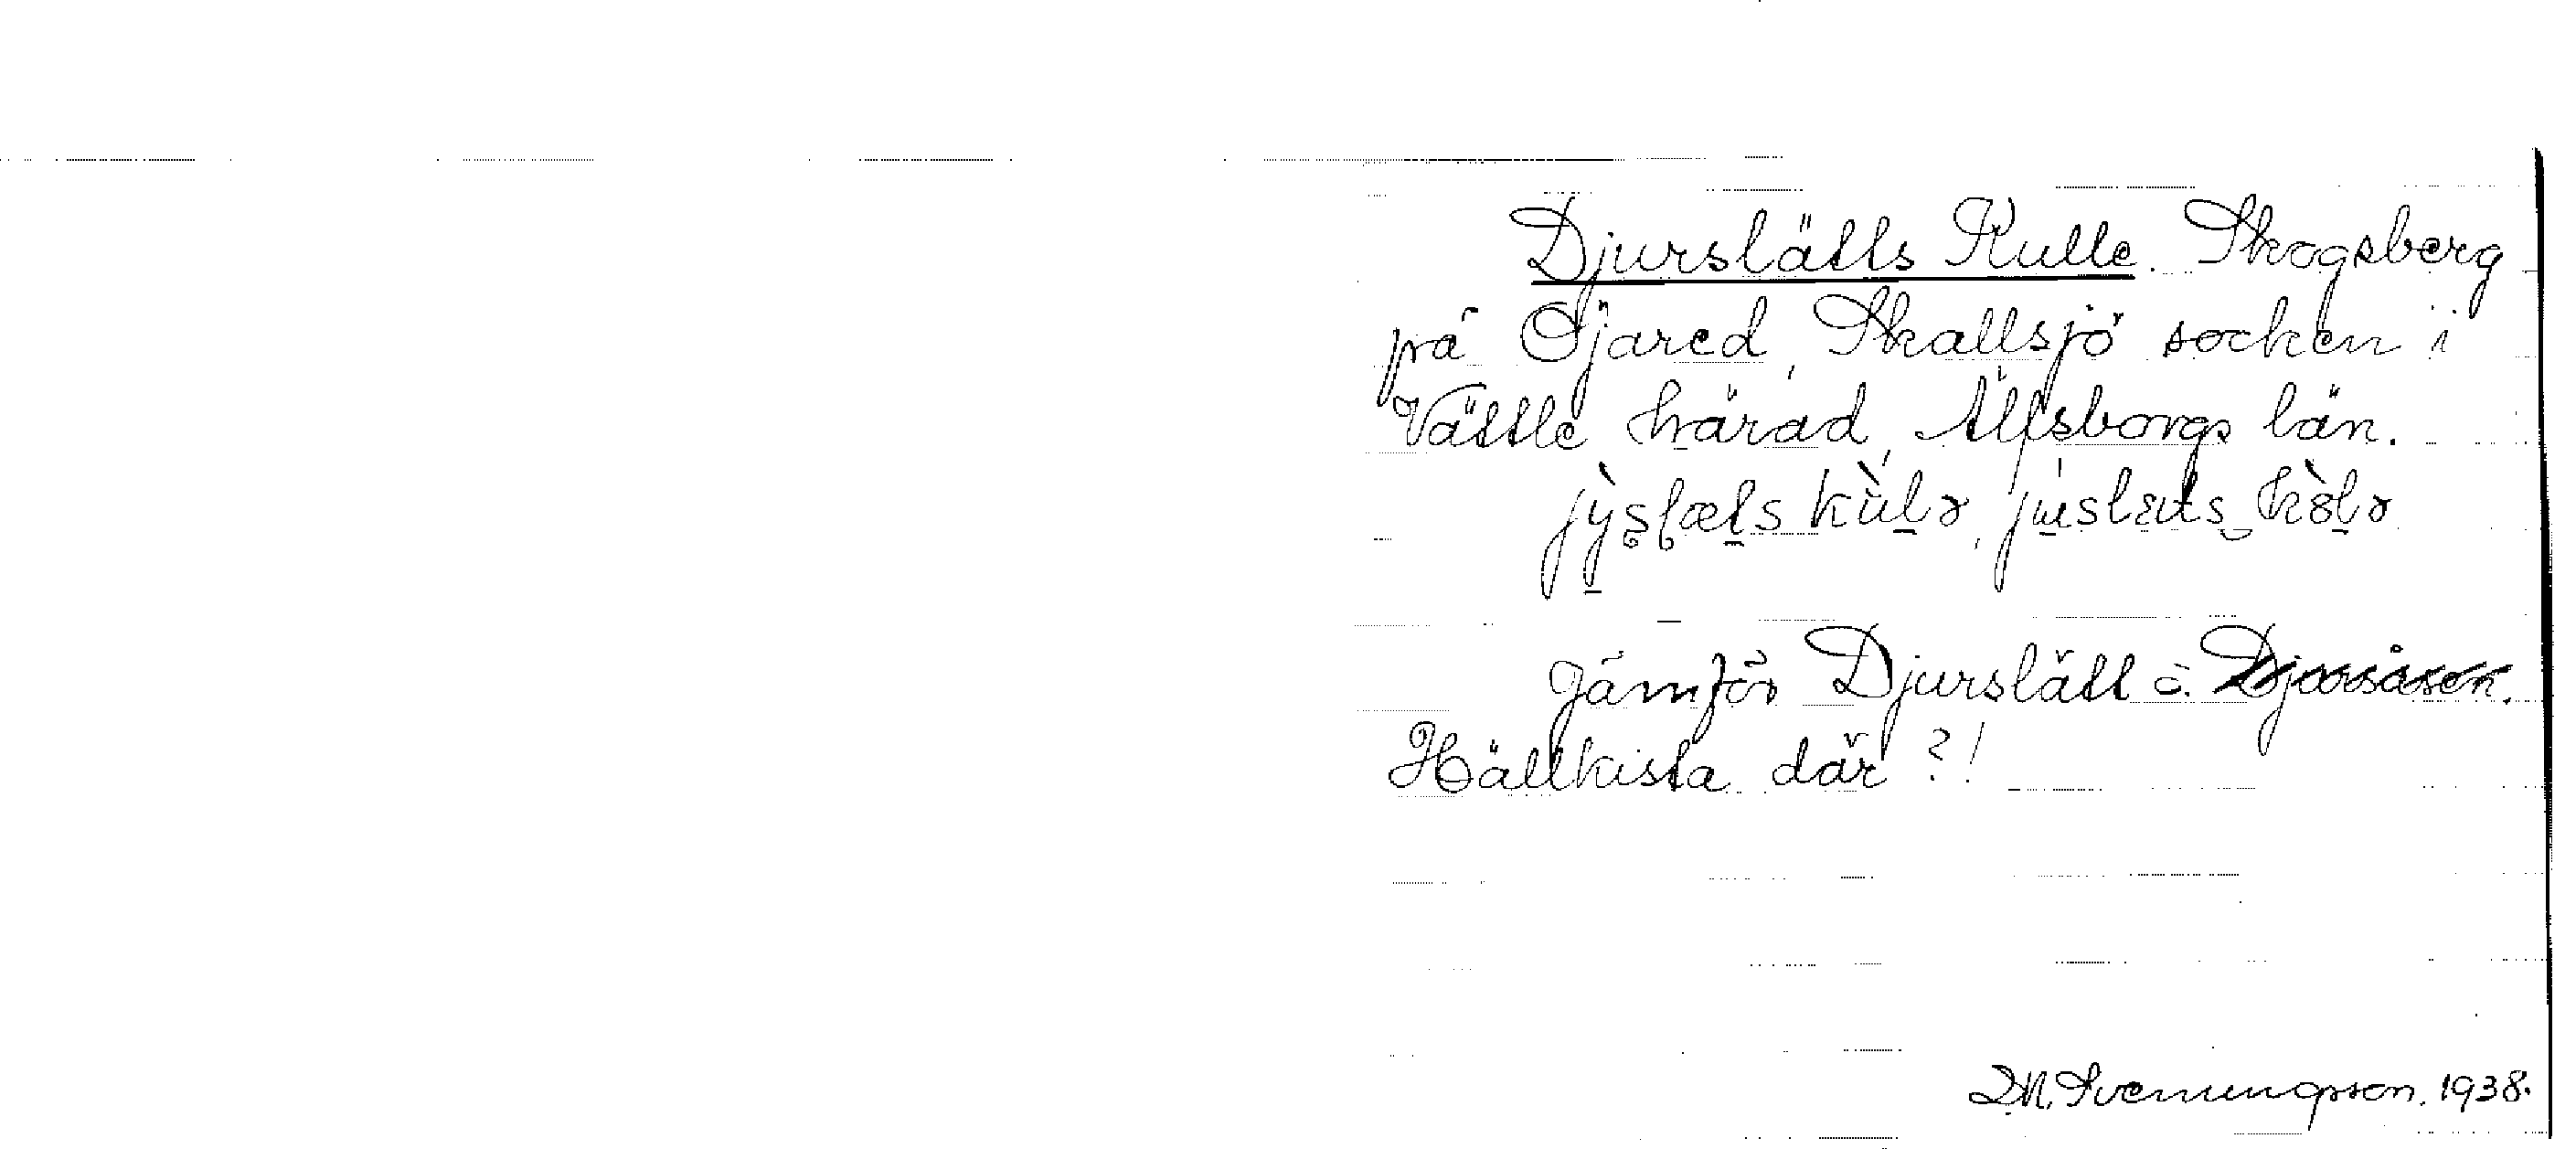 Djurslätts Kulle. Skogsberg
på Öjared, Skallsjö socken i
Vättle härad, Älfsborgs län.
Jämför Djurslätt o. Djursåsen.
Hällkista där?!
D.N. Svenungsson. 1938.